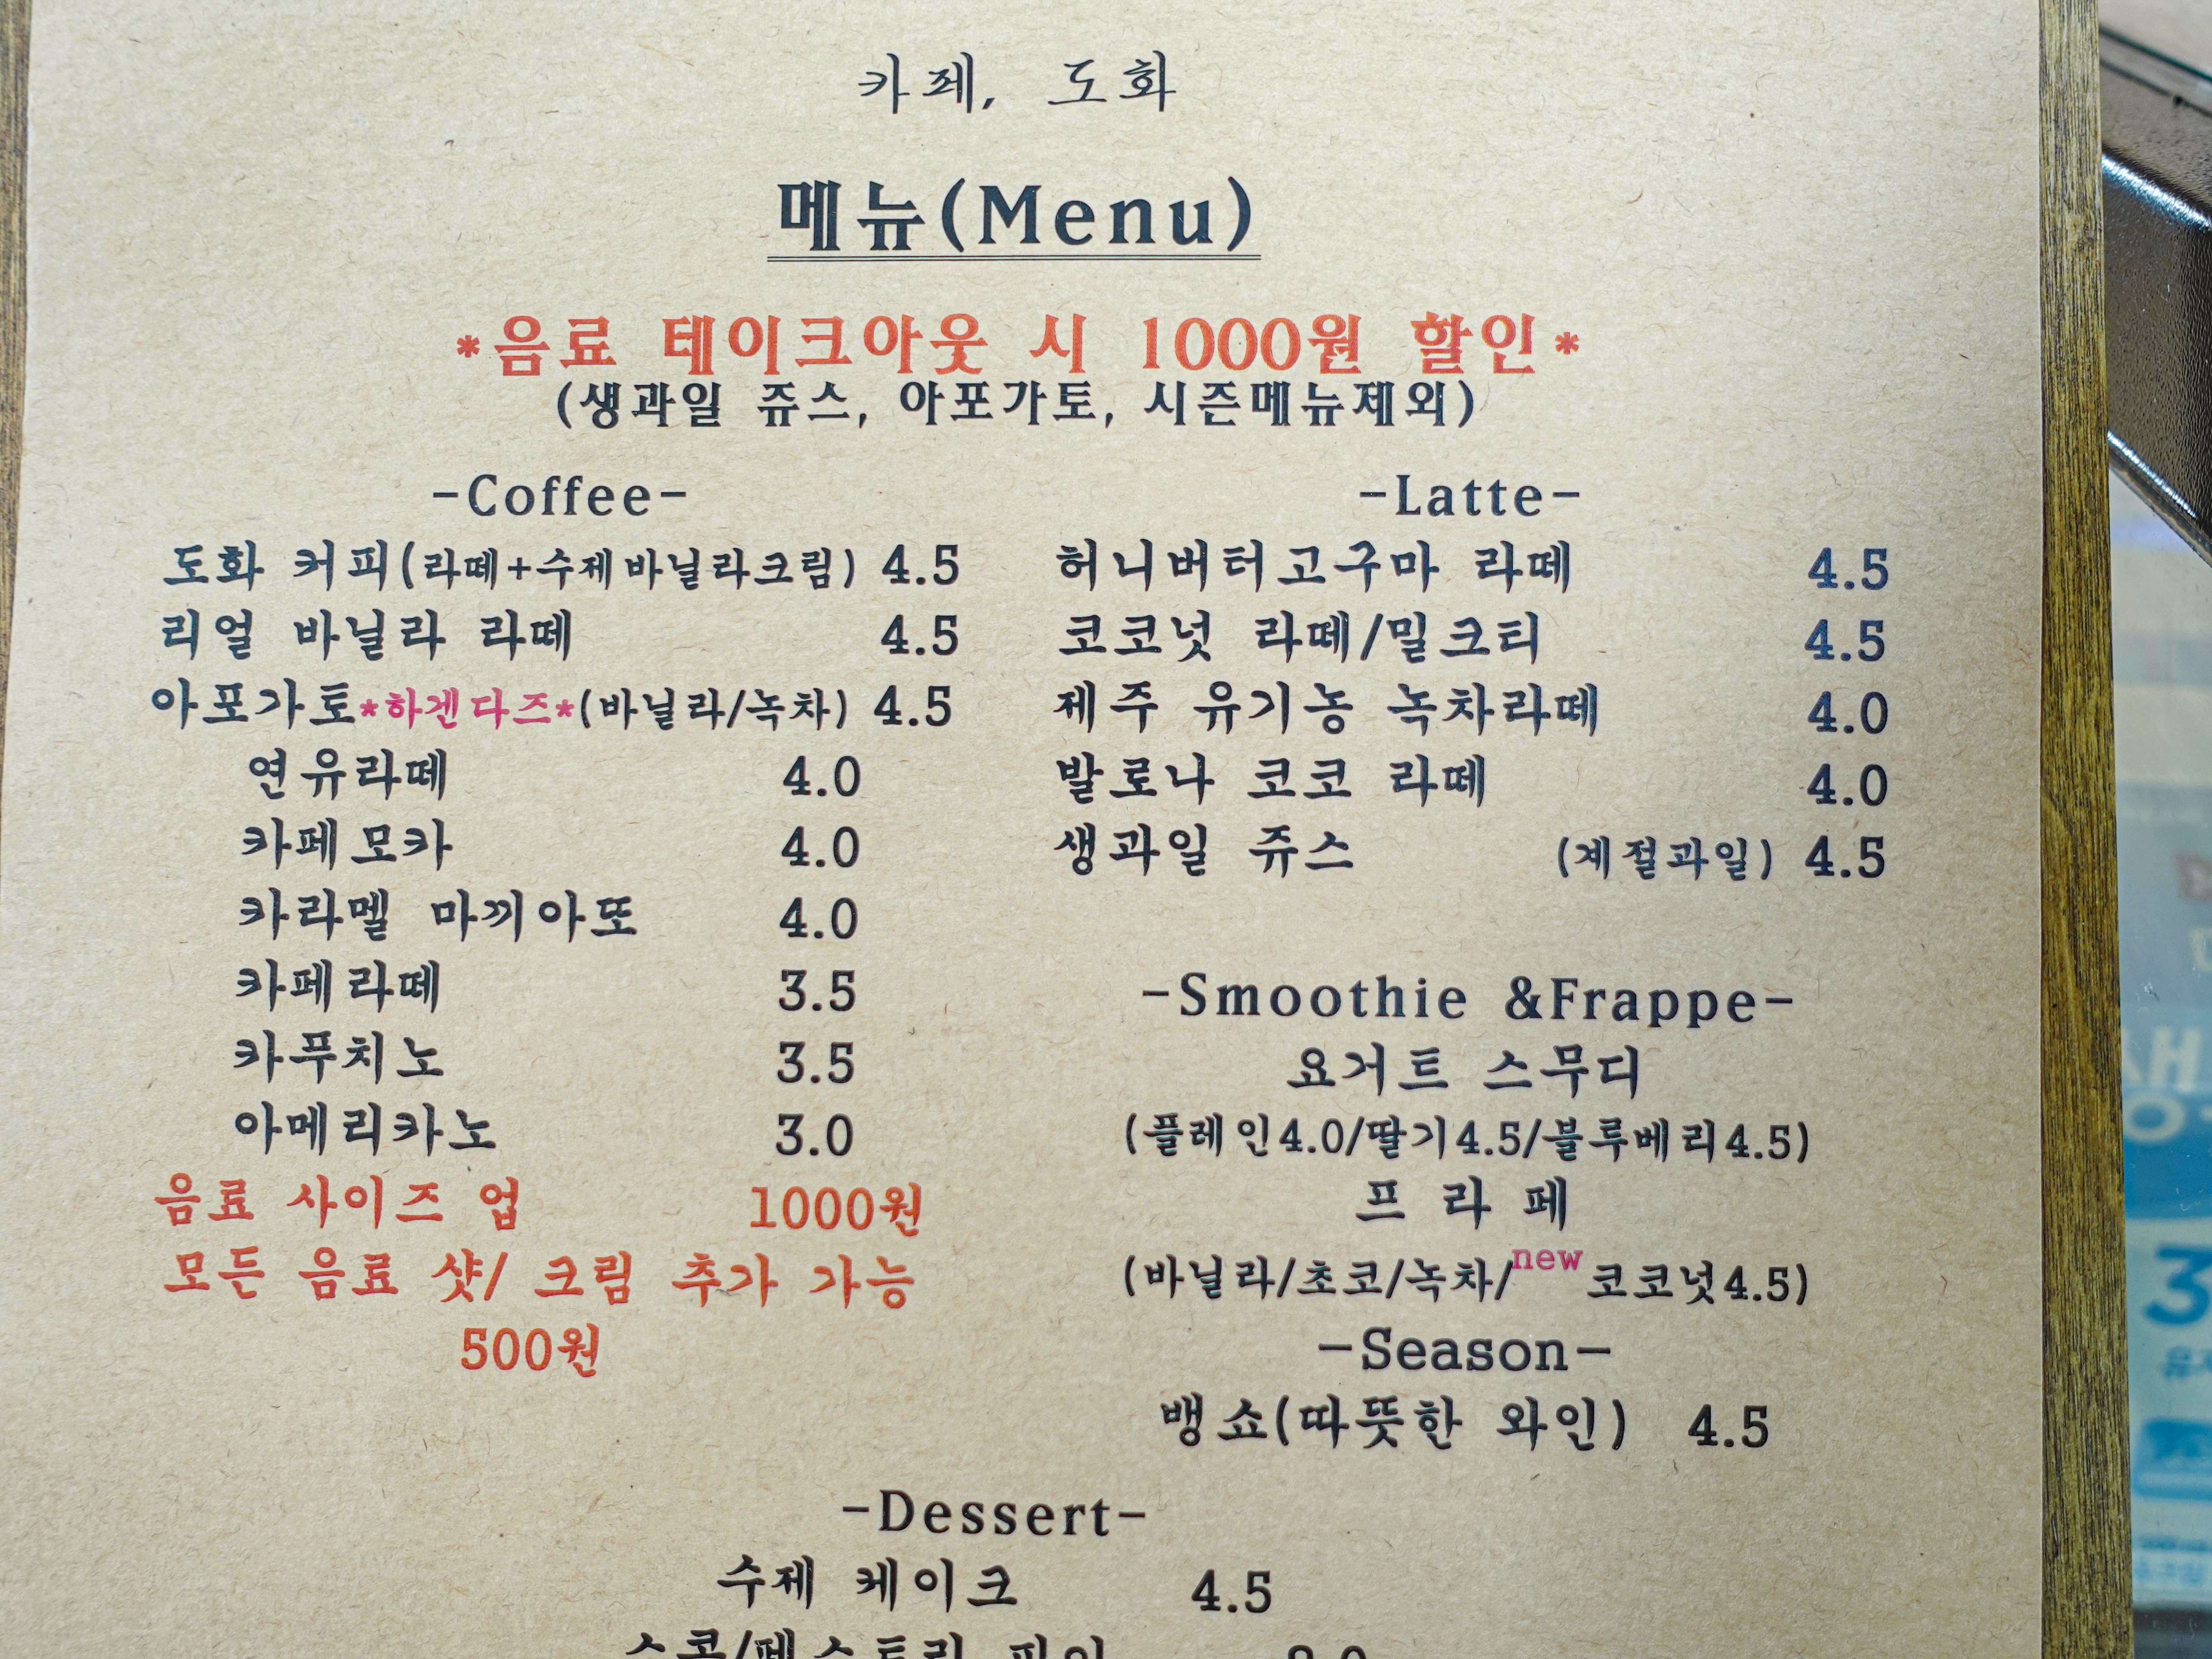 카페, 도화
메뉴(Menu)
*음료 테이크아웃 시 1000원 할인*
(생과일 쥬스, 아포가토, 시즌메뉴제외)
-Coffee-
도화 커피(라떼+수제바닐라크림) 4.5
리얼 바닐라 라떼 4.5
아포가토*하겐다즈*(바닐라/녹차) 4.5
연유라떼 4.0
카페모카 4.0
카라멜 마끼아또 4.0
카페라떼 3.5
카푸치노 3.5
아메리카노 3.0
음료 사이즈 업 1000원
모든 음료 샷/ 크림 추가 가능
500원
-Latte-
허니버터고구마 라떼 4.5
코코넛 라떼/밀크티 4.5
제주 유기농 녹차라떼 4.0
발로나 코코 라떼 4.0
생과일 쥬스 (계절과일) 4.5
-Smoothie &Frappe-
요거트 스무디
(플레인4.0/딸기4.5/블루베리4.5)
프 라 페
(바닐라/초코/녹차/new 코코넛4.5)
-Season-
뱅쇼(따뜻한 와인) 4.5
-Dessert-
수제 케이크 4.5
3